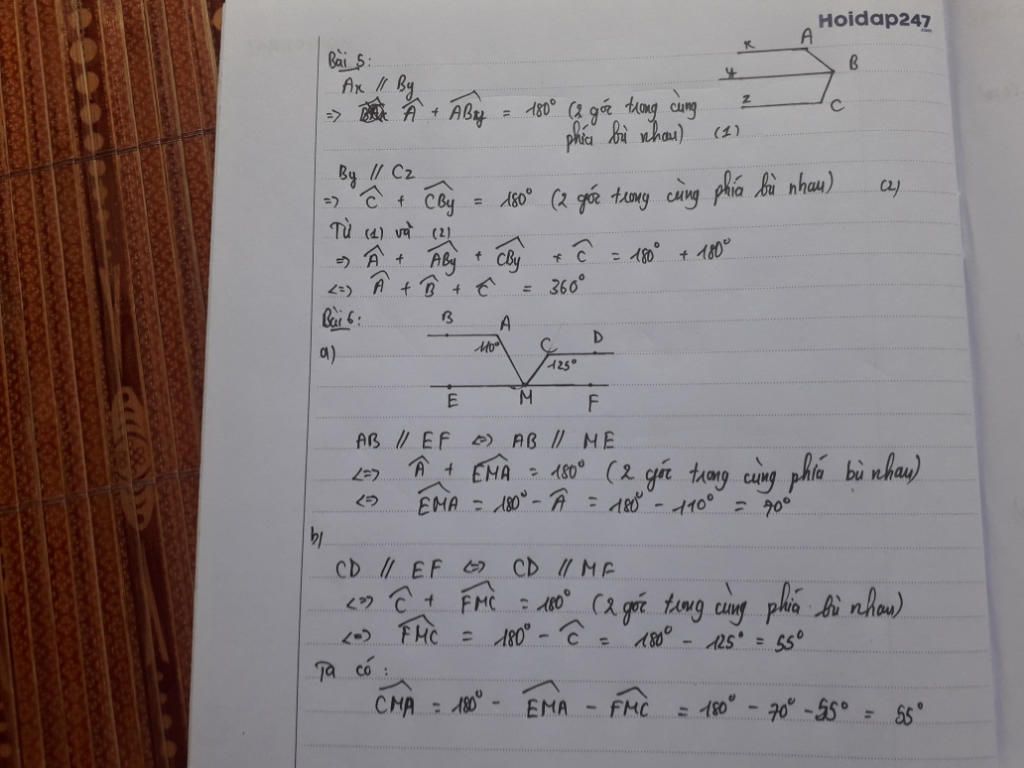 Hoidap247
.com
Bài 5:
x A
y B
z C
Ax // By
=> Â + ABy = 180° (2 góc trong cùng
phía bù nhau) (1)
By // Cz
=> Ĉ + CBy = 180° (2 góc trong cùng phía bù nhau) (2)
Từ (1) và (2)
=> Â + ABy + CBy + Ĉ = 180° + 180°
<=> Â + B̂ + Ĉ = 360°
Bài 6:
a)
B A C D
110° 125°
E M F
AB // EF <=> AB // ME
<=> Â + EMA = 180° (2 góc trong cùng phía bù nhau)
<=> EMA = 180° - Â = 180° - 110° = 70°
b)
CD // EF <=> CD // MF
<=> Ĉ + FMC = 180° (2 góc trong cùng phía bù nhau)
<=> FMC = 180° - Ĉ = 180° - 125° = 55°
Ta có:
CMA = 180° - EMA - FMC = 180° - 70° - 55° = 55°